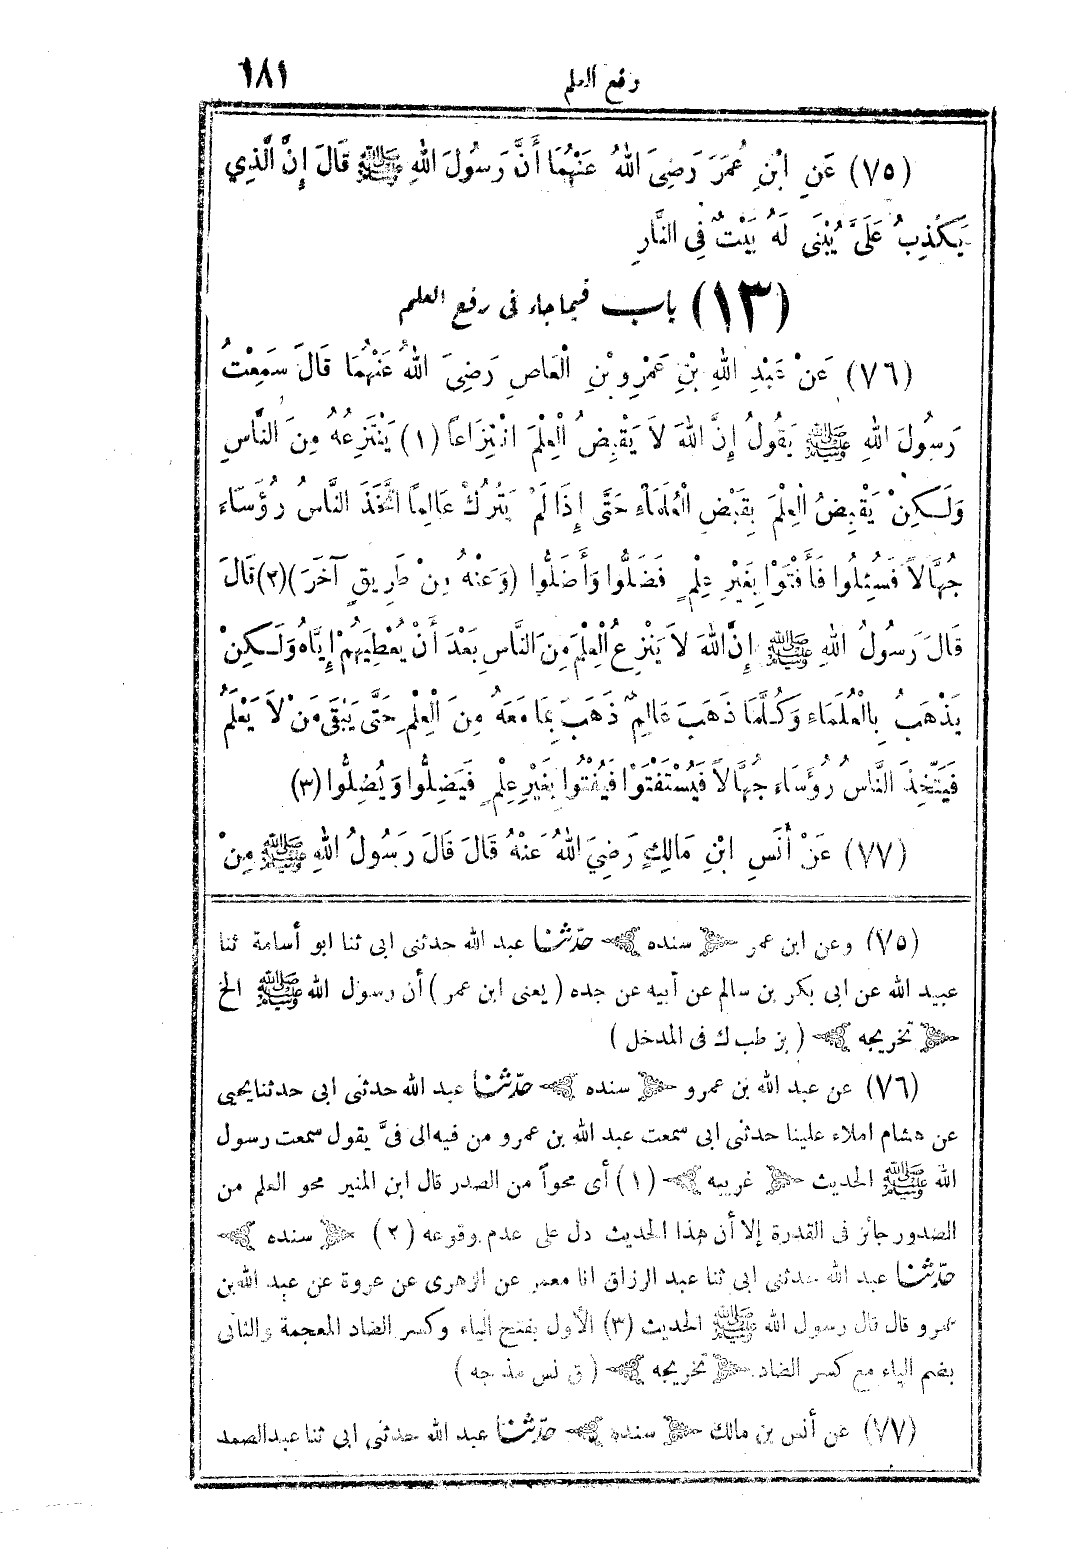 رفع العلم ١٨١
(٧٥) عَنِ ابْنِ عُمَرَ رَضِىَ اللهُ عَنْهُمَا أَنَّ رَسُولَ اللهِ ﷺ قَالَ إِنَّ الَّذِي
يَكْذِبُ عَلَىَّ يُبْنَى لَهُ بَيْتٌ فِى النَّارِ
(١٣) باب فيما جاء فى رفع العلم
(٧٦) عَنْ عَبْدِ اللهِ بْنِ عَمْرِو بْنِ الْعَاصِ رَضِىَ اللهُ عَنْهُمَا قَالَ سَمِعْتُ
رَسُولَ اللهِ ﷺ يَقُولُ إِنَّ اللهَ لاَ يَقْبِضُ الْعِلْمَ انْتِزَاعاً (١) يَنْتَزِعُهُ مِنَ النَّاسِ
وَلَكِنْ يَقْبِضُ الْعِلْمَ بِقَبْضِ الْعُلَمَاءِ حَتَّى إِذَا لَمْ يَتْرُكْ عَالِمًا اتَّخَذَ النَّاسُ رُؤَسَاءَ
جُهَّالاً فَسُئِلُوا فَأَفْتَوْا بِغَيْرِ عِلْمٍ فَضَلُّوا وَأَضَلُّوا (وَعَنْهُ مِنْ طَرِيقٍ آخَرَ)(٢) قَالَ
قَالَ رَسُولُ اللهِ ﷺ إِنَّ اللهَ لاَ يَنْزِعُ الْعِلْمَ مِنَ النَّاسِ بَعْدَ أَنْ يُعْطِيَهُمْ إِيَّاهُ وَلَكِنْ
يَذْهَبُ بِالْعُلَمَاءِ وَكُلَّمَا ذَهَبَ عَالِمٌ ذَهَبَ بِمَا مَعَهُ مِنَ الْعِلْمِ حَتَّى يَبْقَى مَنْ لاَ يَعْلَمُ
فَيَتَّخِذَ النَّاسُ رُؤَسَاءَ جُهَّالاً فَيُسْتَفْتَوْا فَيُفْتُوا بِغَيْرِ عِلْمٍ فَيَضِلُّوا وَيُضِلُّوا (٣)
(٧٧) عَنْ أَنَسِ ابْنِ مَالِكٍ رَضِيَ اللهُ عَنْهُ قَالَ قَالَ رَسُولُ اللهِ ﷺ مِنْ
(٧٥) وعن ابن عمر سنده حدّثنا عبد الله حدثنى ابى ثنا ابو أسامة ثنا
عبيد الله عن ابى بكر بن سالم عن أبيه عن جده (يعنى ابن عمر) أن رسول الله ﷺ الخ
تخريجه (بز طب ك فى المدخل)
(٧٦) عن عبد الله بن عمرو سنده حدّثنا عبد الله حدثنى ابى حدثنا يحيى
عن هشام املاء علينا حدثنى ابى سمعت عبد الله بن عمرو من فيه الى فىَّ يقول سمعت رسول
الله ﷺ الحديث غريبه (١) أى محواً من الصدر قال ابن المنير محو العلم من
الصدور جائز فى القدرة إلا أن هذا الحديث دل على عدم وقوعه (٢) سنده
حدّثنا عبد الله حدثنى ابى ثنا عبد الرزاق انا معمر عن الزهرى عن عروة عن عبد الله بن
عمرو قال قال رسول الله ﷺ الحديث (٣) الأول بفتح الياء وكسر الضاد المعجمة والثانى
بضم الياء مع كسر الضاد تخريجه (ق نس مذ جه)
(٧٧) عن أنس بن مالك سنده حدّثنا عبد الله حدثنى ابى ثنا عبد الصمد